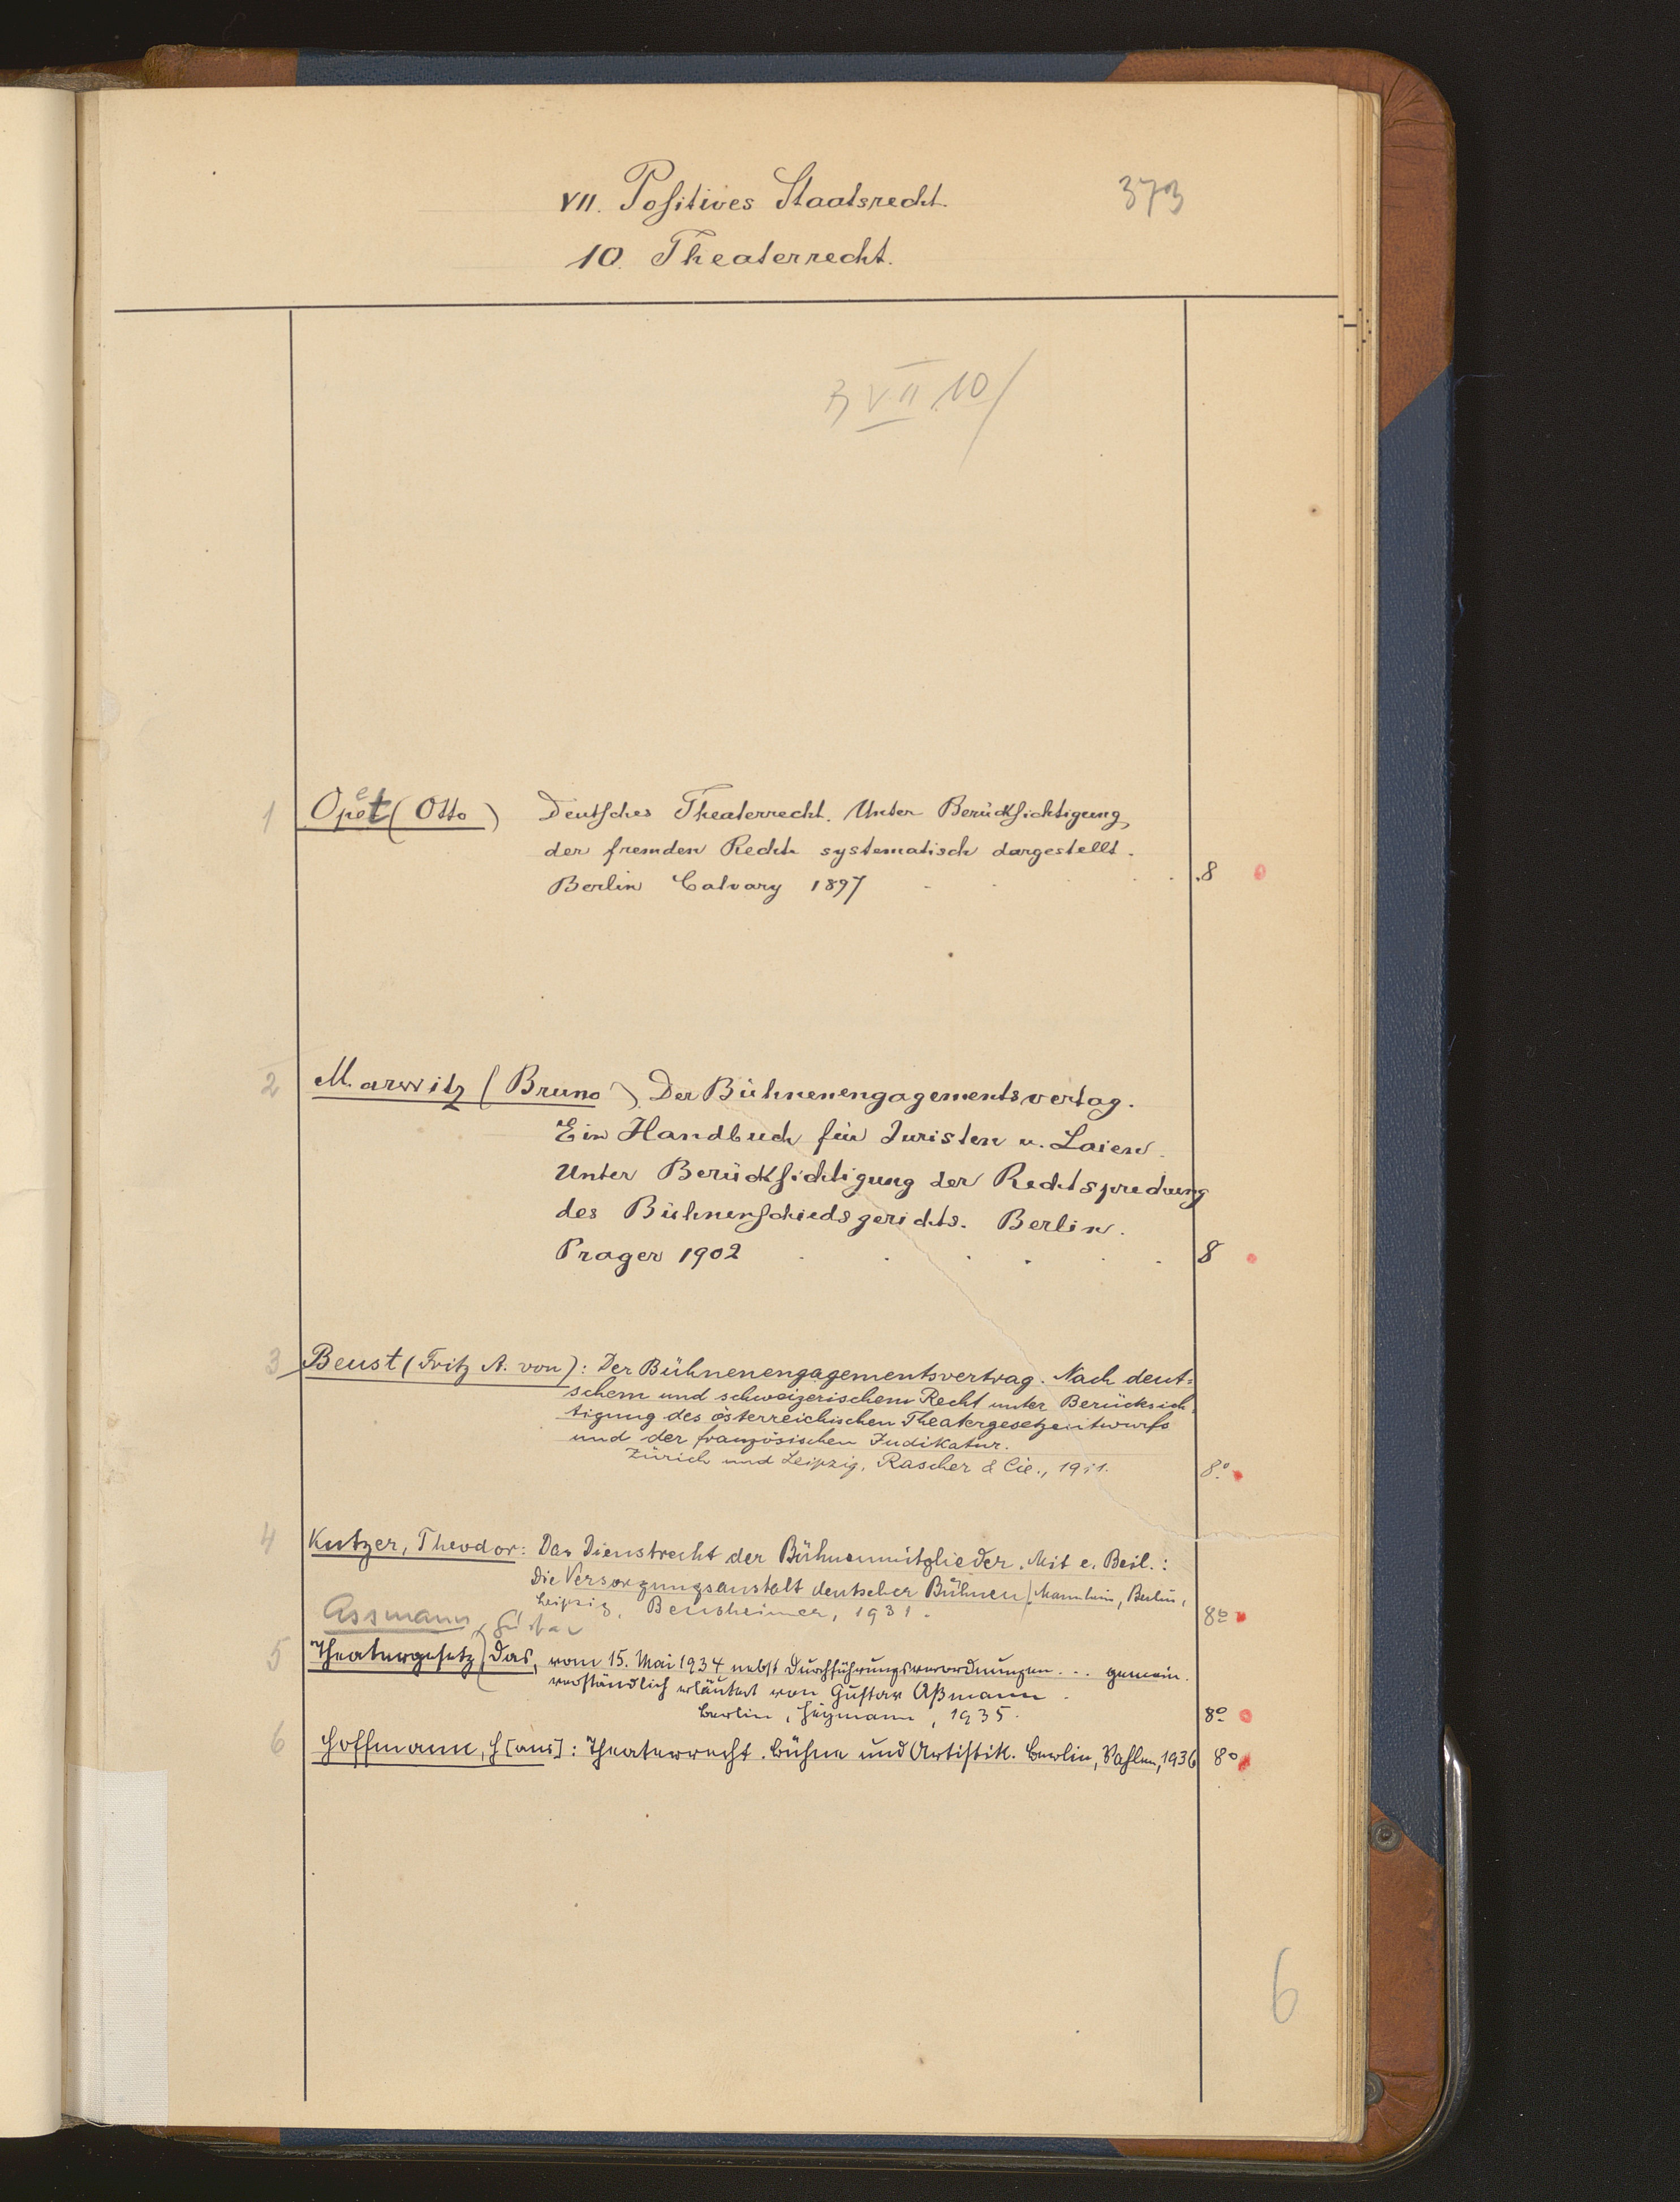 VII. Positives Staatsrecht.
373
10. Theaterrecht.
VII 10/
1 Opet (Otto) Deutsches Theaterrecht. Unter Berücksichtigung
der fremden Rechte systematisch dargestellt.
Berlin Calvary 1897 . . . . 8
2 Marwitz (Bruno) Der Bühnenengagementsvertag.
Ein Handbuch für Juristen u. Laien.
Unter Berücksichtigung der Rechtsprechung
des Bühnenschiedsgerichts. Berlin.
Prager 1902 . . . . . . 8
3 Beust (Fritz A. von): Der Bühnenengagementsvertrag. Nach deut-
schem und schweizerischem Recht unter Berücksich-
tigung des österreichischen Theatergesetzentwurfs
und der französischen Judikatur.
Zürich und Leipzig, Rascher & Cie., 1911. 8.°
4 Kutzer, Theodor: Das Dienstrecht der Bühnenmitglieder. Mit e. Beil.:
Die Versorgungsanstalt deutscher Bühnen). Mannheim, Berlin,
Leipzig, Bensheimer, 1931. 8°
Assmann, Gustav
5 Theatergesetz (Das, vom 15. Mai 1934 nebst Durchführungsverordnungen ... gemein-
verständlich erläutert von Gustav Aßmann.
Berlin, Heymann, 1935. 8°
6 Hoffmann, H[ans]: Theaterrecht. Bühne und Artistik. Berlin, Vahlen, 1936 8°
6